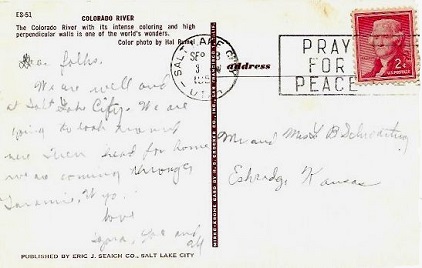 ES-51
COLORADO RIVER
The Colorado River with its intense coloring and high
perpendicular walls is one of the world's wonders.
Color photo by Hal
Dear folks.
We are well and
at Salt Lake City. We are
going to look around
here then head for home
we are coming through
Laramie, Wyo.
love
and
PUBLISHED BY ERIC J. SEAICH CO., SALT LAKE CITY
SALT LAKE CITY
UTAH
PRAY
FOR
PEACE
2¢
U.S. POSTAGE
address
Mr and Mrs B
Eskridge, Kansas